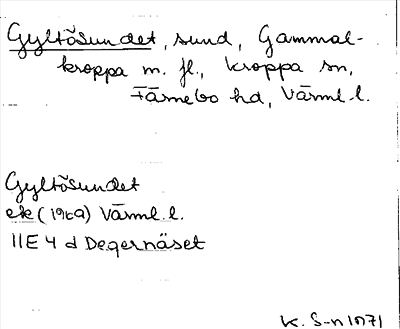 Gyltösundet, sund, Gammal-
kroppa m. fl., Kroppa sn,
Färnebo hd, Värml. l.
Gyltösundet
ek (1969) Värml. l.
11E 4 d Degernäset
K. S-n 1971